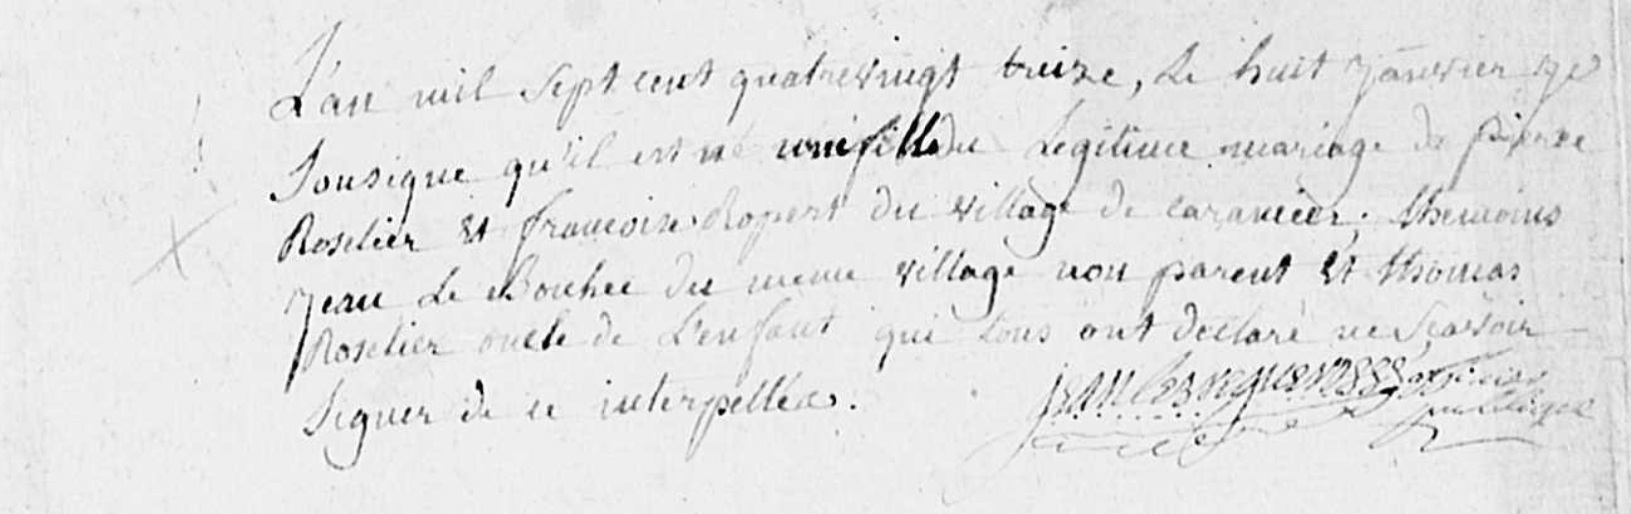 L'an mil sept cent quatrevingt treize, Le huit janvier je
Sousigne qu'il est né unefille du Legitime mariage de pierre
Roselier et francoise Ropert du village de caramier, themoins
jean Le Bouhec du meme village non parent et thomas
Roselier oncle de L'enfant qui tous ont declaré ne scavoir
signer de ce interpellés.
jean officier
publique